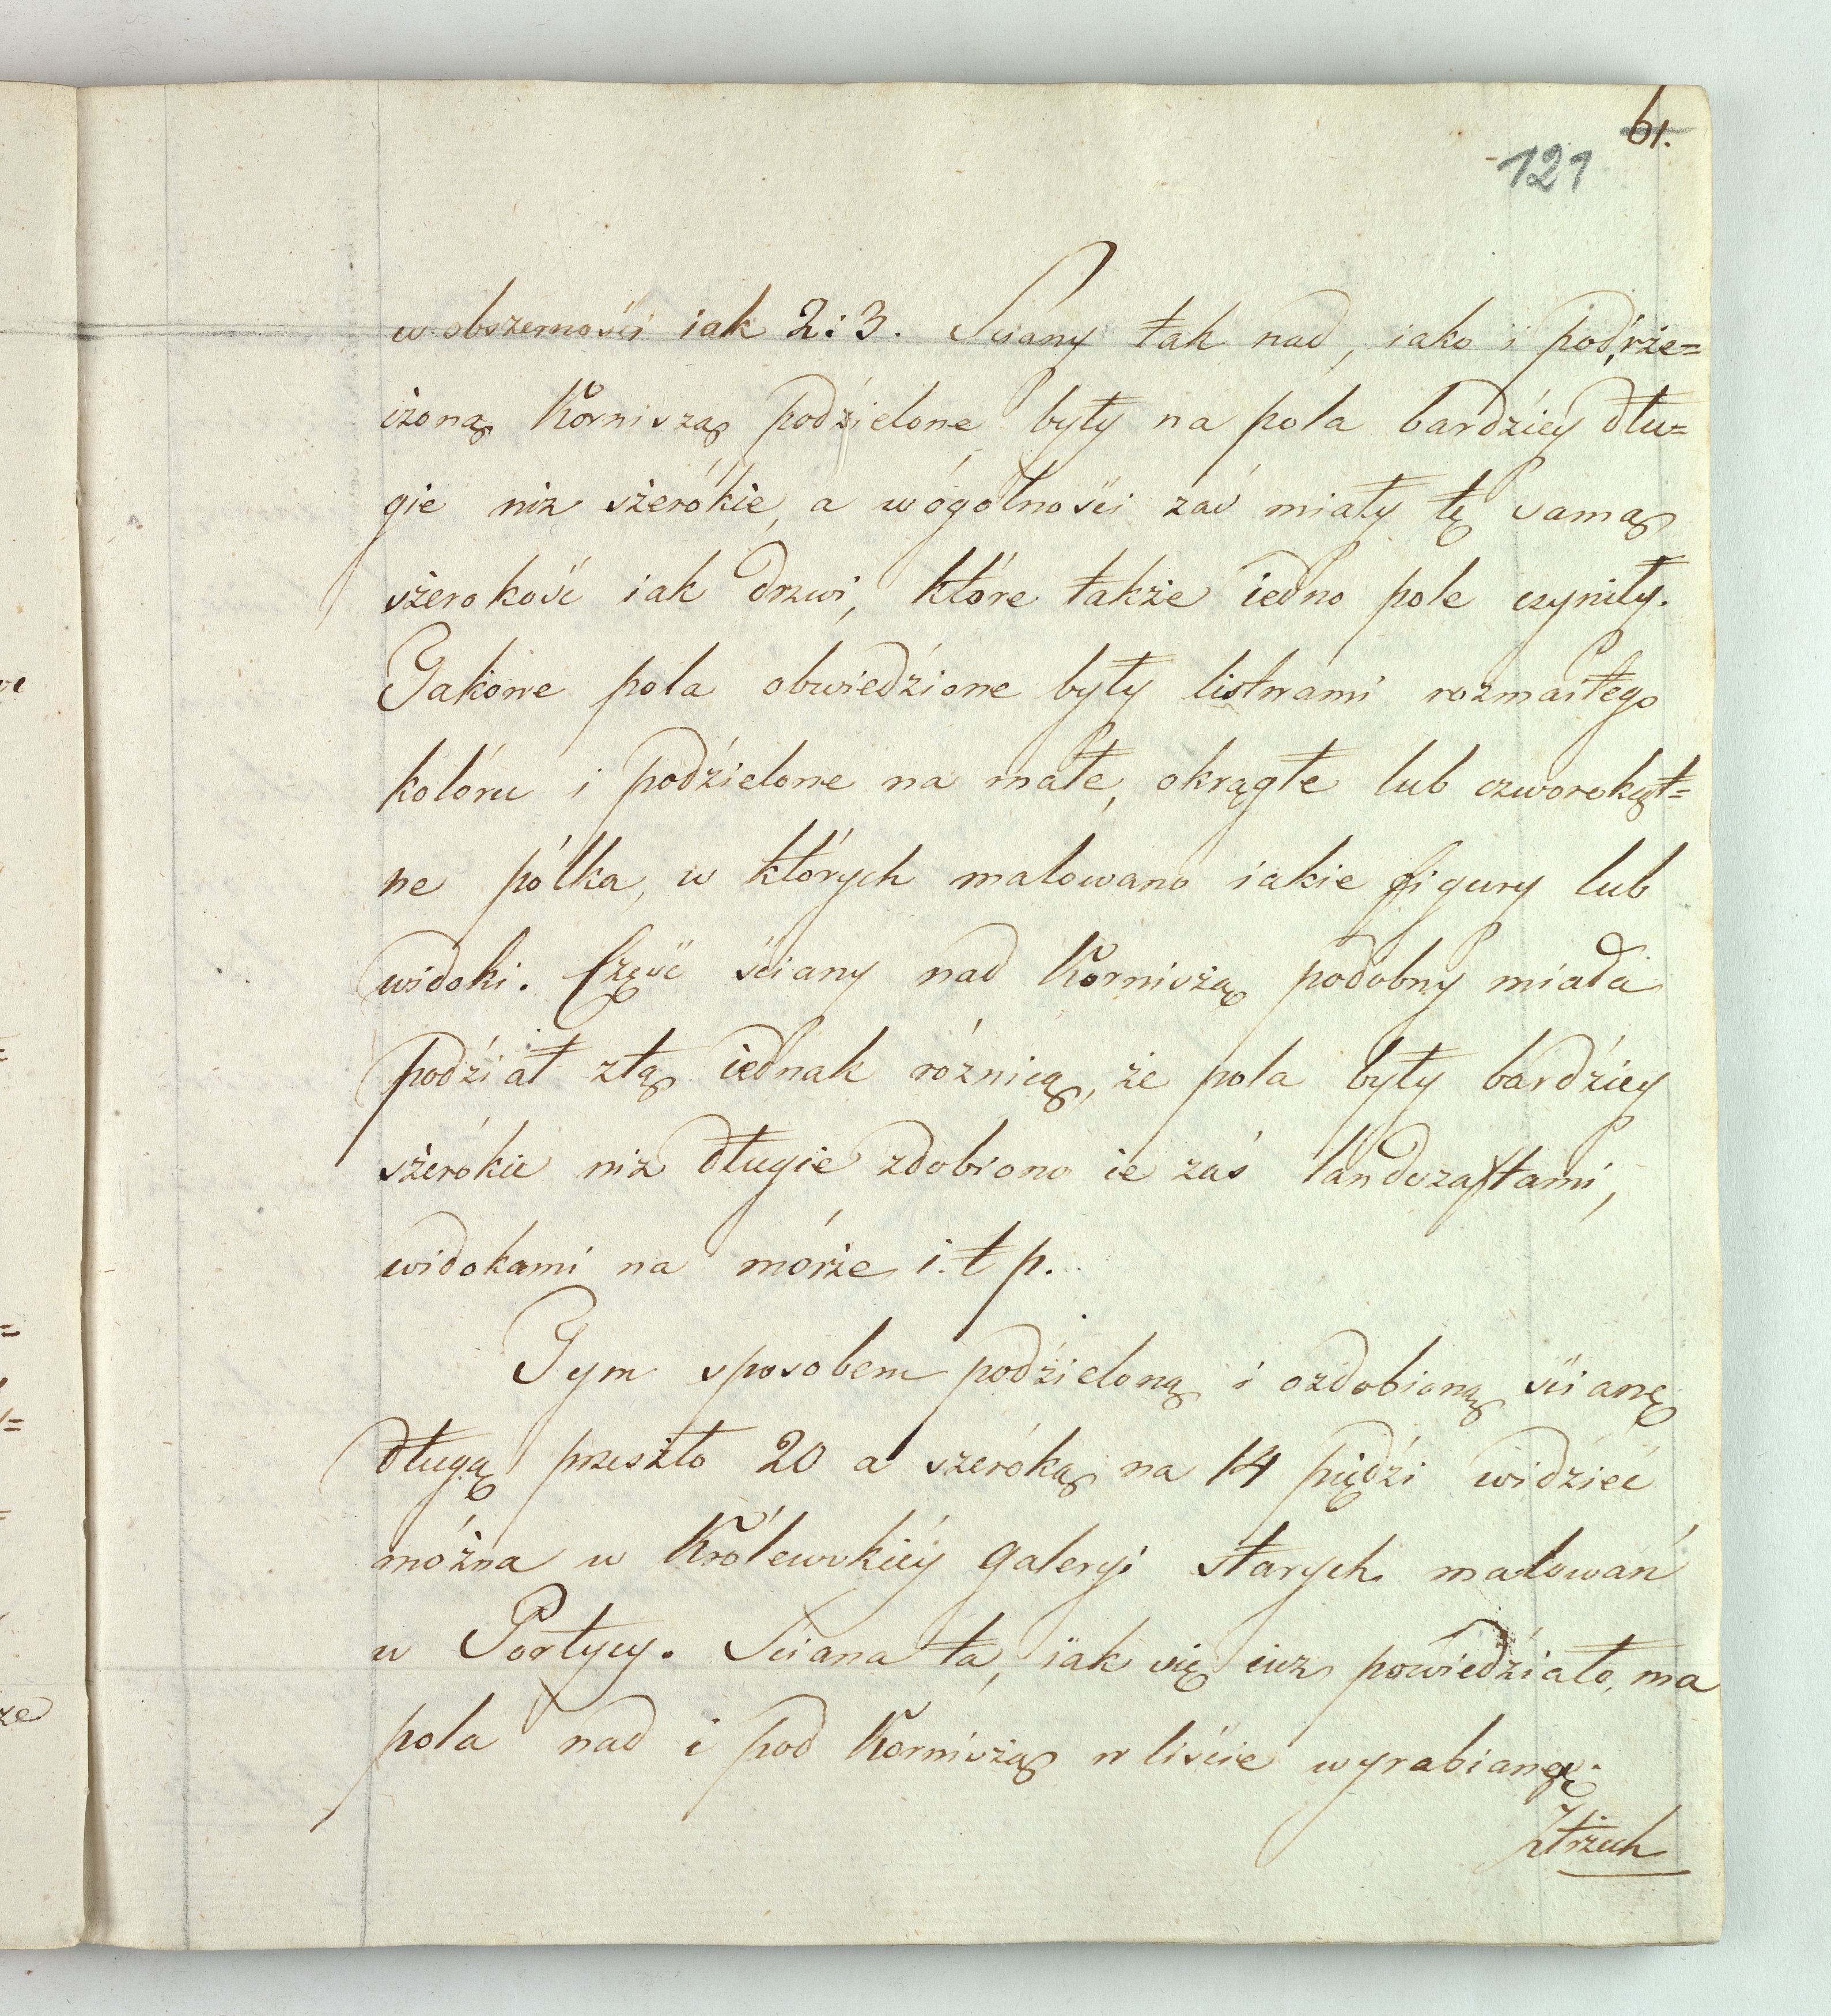 61.
121
w obszerności iak 2:3. Sciany tak nad, iako i pod rze=
czoną Korniszą podzielone były na pola bardziey dłu=
gie niz szerókie, a wógólności zaś miały tę samą
szerokość iak drzwi, które także iedno pole czyniły.
Takowe pola obwiedzione były listwami rozmaitego
kolóru i podzielone na małe, okrągłe lub czworokąt=
ne pólka, w których malowano iakie figury lub
widoki. Część ściany nad Korniszą podobny miała
podział ztą iednak róźnicą, że pola były bardziey
szerókie niz długie zdobiono ie zaś landszaftami,
widokami na mórze i. t p.
Tym sposobem podzieloną i ozdobioną ścianę
długą przeszło 20 a szeróką na 14 piędzi widzieć
można w Królewskiéy galeryi starych malowań
w Portycy. Sciana ta, iak się iuz powiedziało, ma
pola nad i pod Korniszą w liście wyrabianą.
Ztrzech